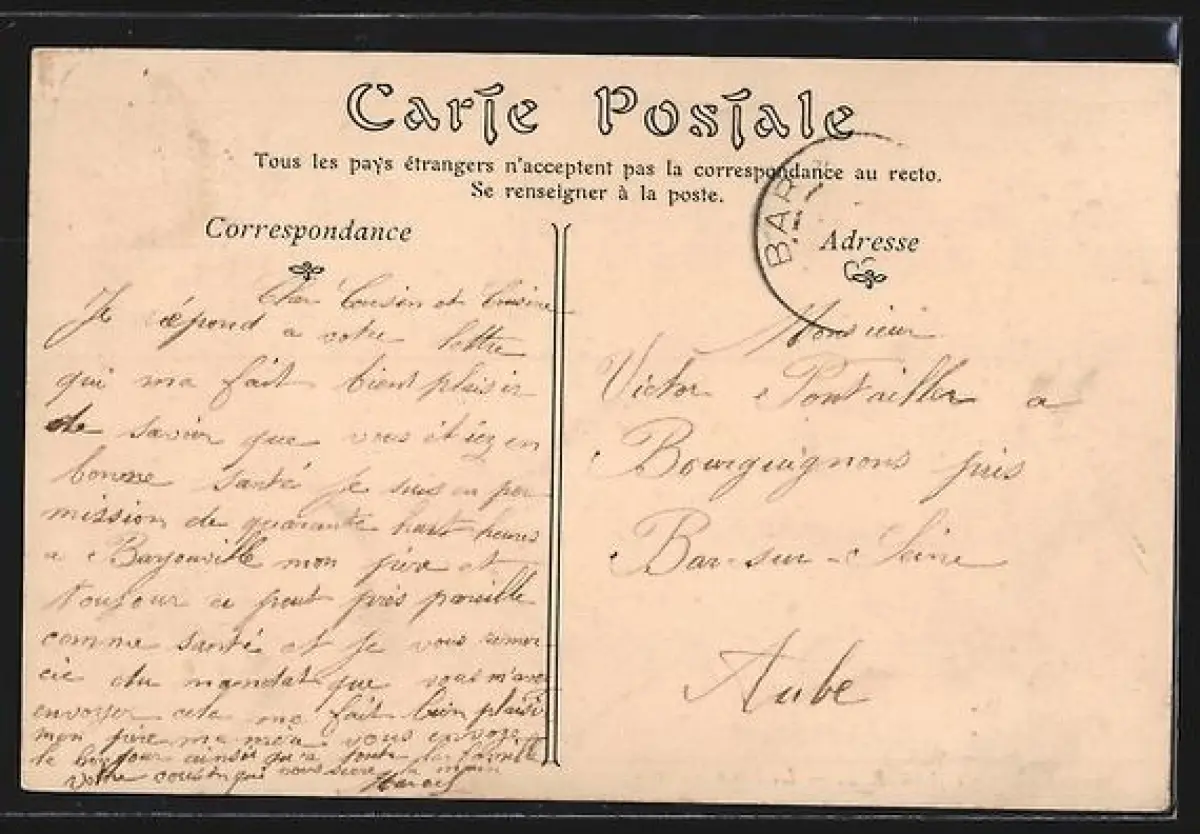 Carte Postale
Tous les pays étrangers n'acceptent pas la correspondance au recto.
Se renseigner à la poste.
Correspondance
Cher Cousin et Cousine
Je répond a votre lettre
qui ma fait bient plaisir
de savoir que vous étiez en
bonne santé je suis en per
mission de quarante huit heures
a mon père et
toujour a peut près pareille
comme santé et je vous remer
cie du mandat que vous m'avez
envoyer cela me fait bien plaisir
mon père ma mère vous envoge
le bonjour ainsie qu'a toute la famille
votre cousin qui vous serre la main
BAR
Adresse
Monsieur
Victor Pontailler a
Bourguignons près
Bar-sur-Seine
Aube